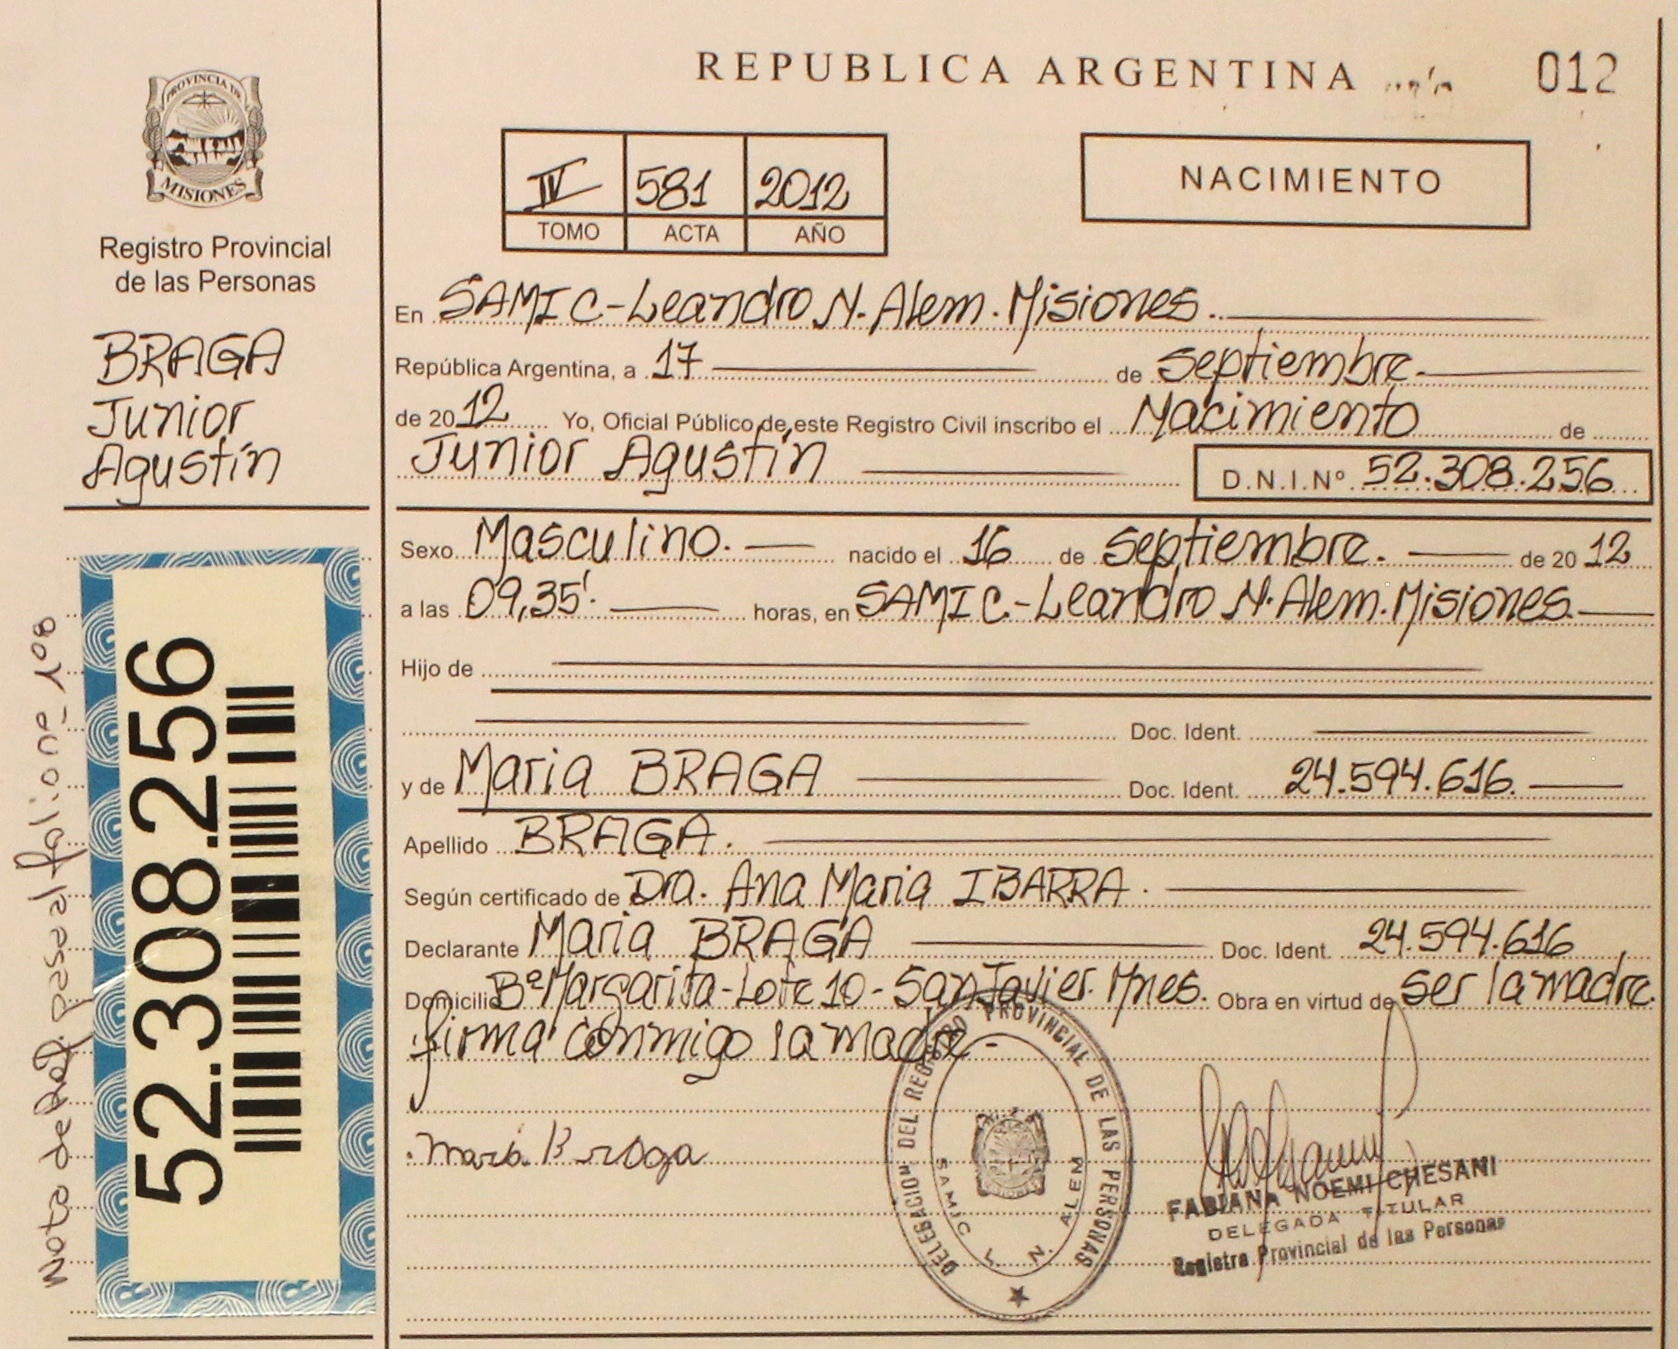 PROVINCIA DE
MISIONES
Registro Provincial
de las Personas
BRAGA
Junior
Agustín
52.308.256
Nota de Ref. pasa al folio nº 108
REPUBLICA ARGENTINA
012
IV 581 2012
TOMO ACTA AÑO
NACIMIENTO
En SAMIC-Leandro N. Alem. Misiones.
República Argentina, a 17 de septiembre.
de 2012 Yo, Oficial Público de este Registro Civil inscribo el Nacimiento de
Junior Agustín D.N.I.Nº 52.308.256
Sexo Masculino. nacido el 16 de septiembre. de 2012
a las 09,35'. horas, en SAMIC.-Leandro N. Alem. Misiones.
Hijo de
Doc. Ident.
y de Maria BRAGA Doc. Ident. 24.594.616.
Apellido BRAGA.
Según certificado de Dra. Ana Maria IBARRA.
Declarante Maria BRAGA Doc. Ident. 24.594.616
Domicilio Bº Margarita-Lote 10-San Javier. Mnes. Obra en virtud de ser la madre.
firma conmigo la madre-
Maria Braga
DELEGACION DEL REGISTRO PROVINCIAL DE LAS PERSONAS
SAMIC L. N. ALEM
FABIANA NOEMI CHESANI
DELEGADA TITULAR
Registro Provincial de las Personas